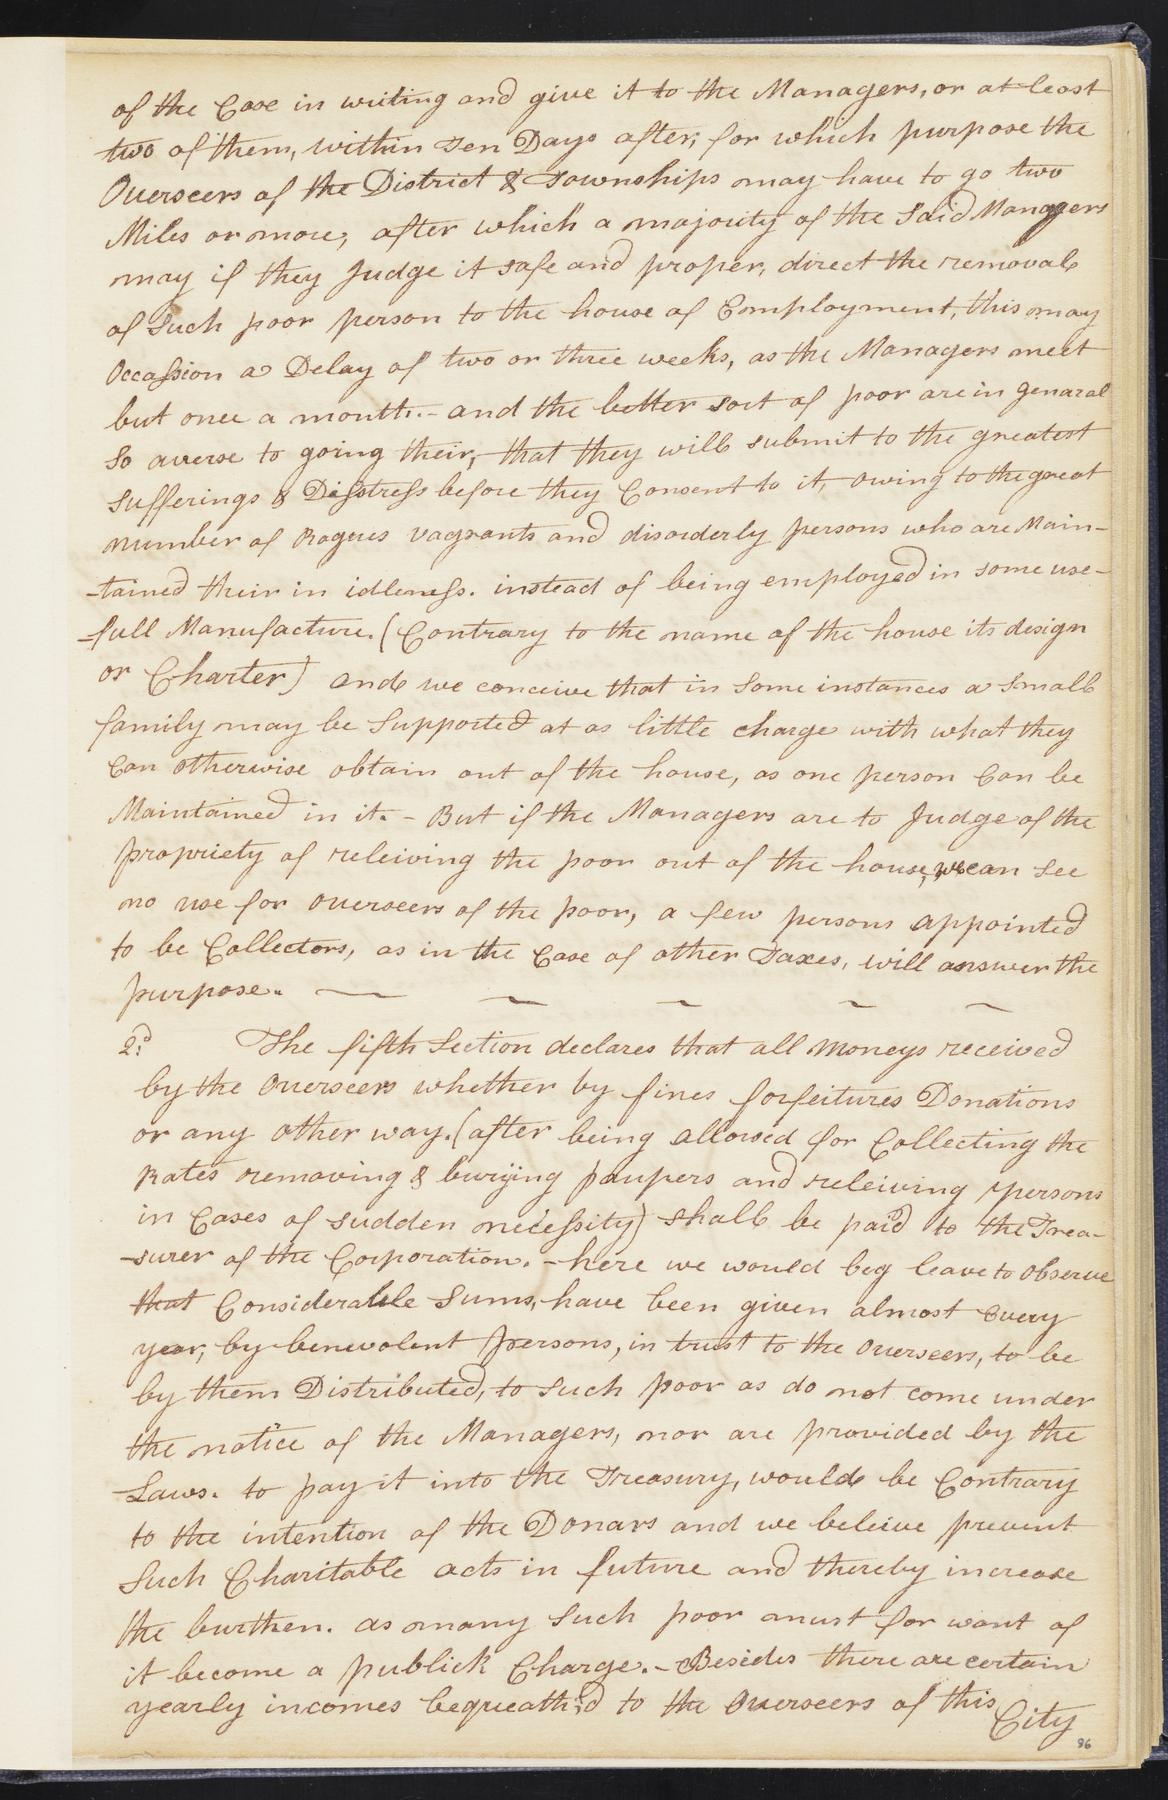 of the Case in writing and give it to the Managers, or at least
two of them, within Ten Days after, for which purpose the
Overseers of the District & Townships may have to go two
Miles or more, after which a majority of the said Managers
may if they Judge it safe and proper, direct the removal
of Such poor person to the house of Employment, this may
Occassion a Delay of two or three weeks, as the Managers meet
but once a month. - and the better sort of poor are in genaral
So averse to going their, that they will submit to the greatest
sufferings & Disstress before they Consent to it, owing to the great
number of Rogues vagrants and disorderly persons who are Main-
-tained their in idleness. instead of being employed in some use-
-full Manufacture. (Contrary to the name of the house its design
or Charter) and we conceive that in Some instances a Small
family may be Supported at as little charge with what they
Can otherwise obtain out of the house, as one person Can be
Maintained in it. - But if the Managers are to Judge of the
propriety of releiving the poor out of the house, we can see
no use for overseers of the poor, a few persons appointed
to be Collectors, as in the Case of other Taxes, will answer the
purpose.
2d The fifth Section declares that all Moneys received
by the Overseers whether by fines forfeitures Donations
or any other way. (after being allowed for Collecting the
Rates removing & burying paupers and releiving persons
in Cases of sudden necessity) shall be paid to the Trea-
-surer of the Corporation. - here we would beg leave to observe
that Considerable Sums, have been given almost every
year, by benevolent persons, in trust to the Overseers, to be
by them Distributed, to Such poor as do not come under
the notice of the Managers, nor are provided by the
Laws. to pay it into the Treasury, would be Contrary
to the intention of the Donars and we beleive prevent
Such Charitable acts in future and thereby increase
the burthen. as many Such poor must for want of
it become a publick Charge. - Besides there are certain
yearly incomes bequeath'd to the Overseers of this
City
96